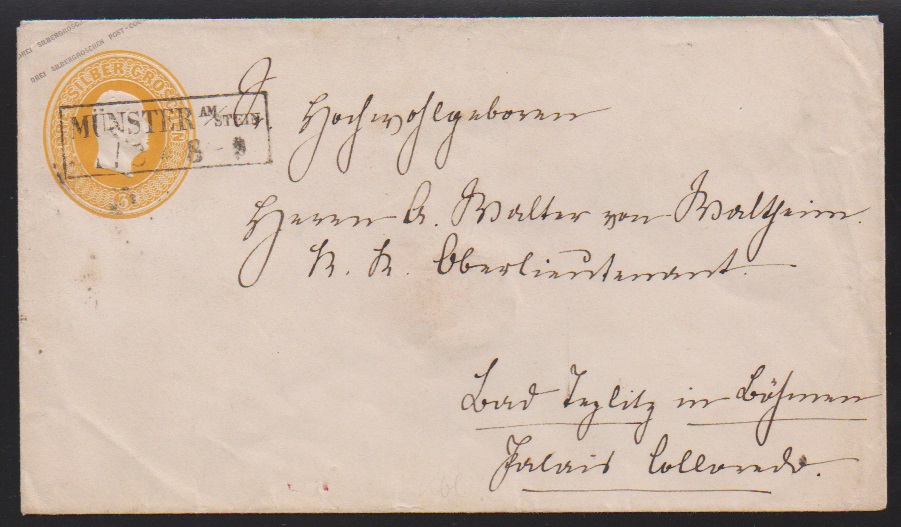 DREI SILBERGROSCHEN
DREI SILBERGROSCHEN POST-COUVERT
SILBER GROSCHEN
3
MÜNSTER AM/STEIN
Hochwohlgeboren
Herrn A. Walter von Waltheim.
K. K. Oberlieutenant.
Bad Teplitz in Böhmen
Palais Colloredo.